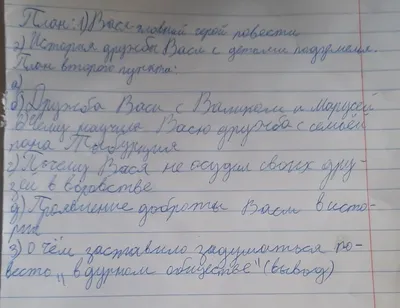 План: 1) Вася главной герой повести
2) История дружбы Васи с детьми подземелия.
План второго пункта:
а)
б) Дружба Васи с Валиком и Марусей
в) Чему научила Васю дружба с семьёй
пана Тыбурция
г) Почему Вася не осудил своих дру-
зей в воровстве
д) Проявление доброты Васи в исто-
рии
з) О чём заставило задуматься по-
весть „в дурном обществе" (вывод)